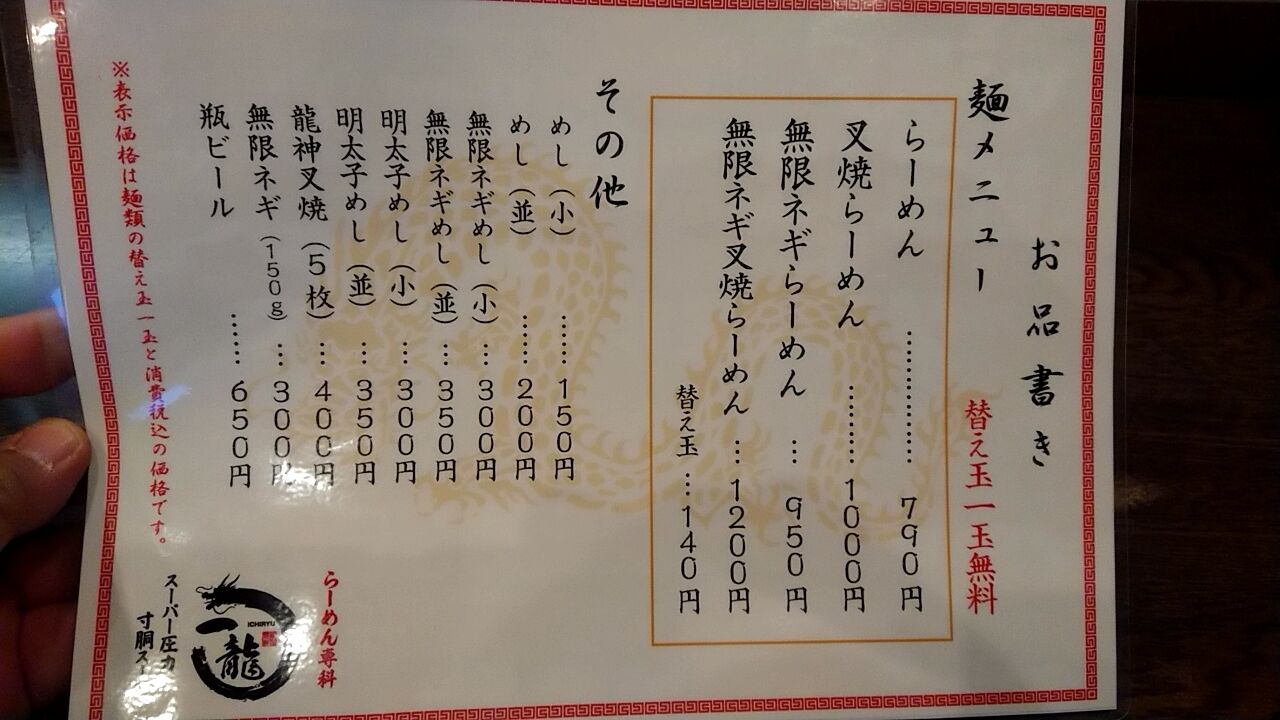 お品書き
麺メニュー
替え玉一玉無料
らーめん ………… 790円
叉焼らーめん ……… 1000円
無限ネギらーめん … 950円
無限ネギ叉焼らーめん … 1200円
替え玉 … 140円
その他
めし(小) …… 150円
めし(並) …… 200円
無限ネギめし(小) … 300円
無限ネギめし(並) … 350円
明太子めし(小) … 300円
明太子めし(並) … 350円
龍神叉焼(5枚) … 400円
無限ネギ(150g) … 300円
瓶ビール …… 650円
※表示価格は麺類の替え玉一玉と消費税込の価格です。
らーめん専科
一龍
ICHIRYU
スーパー圧力
寸胴スー